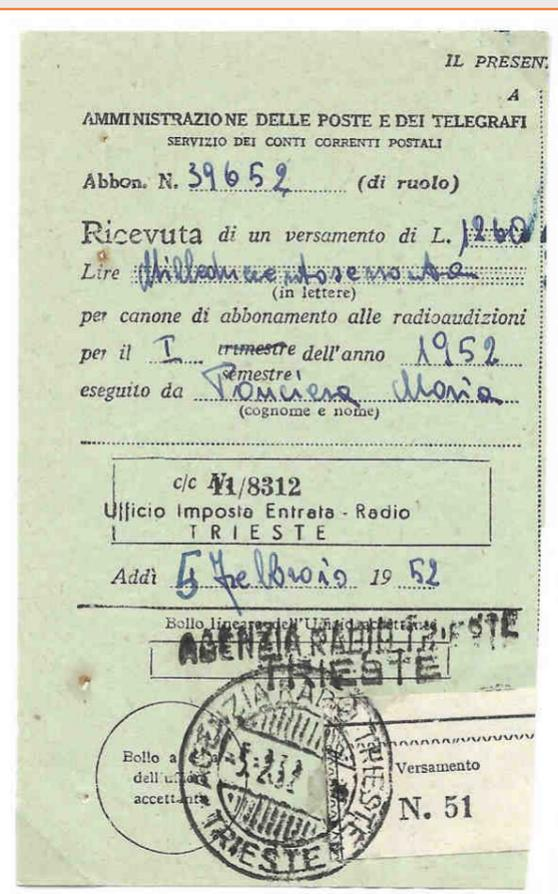 IL PRESEN
A
AMMINISTRAZIONE DELLE POSTE E DEI TELEGRAFI
SERVIZIO DEI CONTI CORRENTI POSTALI
Abbon. N. 39652 (di ruolo)
Ricevuta di un versamento di L. 1260
Lire Milleduecentosessanta
(in lettere)
per canone di abbonamento alle radioaudizioni
per il I trimestre dell'anno 1952
semestre
eseguito da Panciera Maria
(cognome e nome)
c/c N. 11/8312
Ufficio Imposta Entrata - Radio
TRIESTE
Addì 5 febbraio 19 52
Bollo lineare dell'Ufficio accettante
AGENZIA RADIO TRIESTE
TRIESTE
AGENZIA RADIO TRIESTE
-5.2.52
TRIESTE
Bollo a
dell'uffici
accettante
Versamento
N. 51